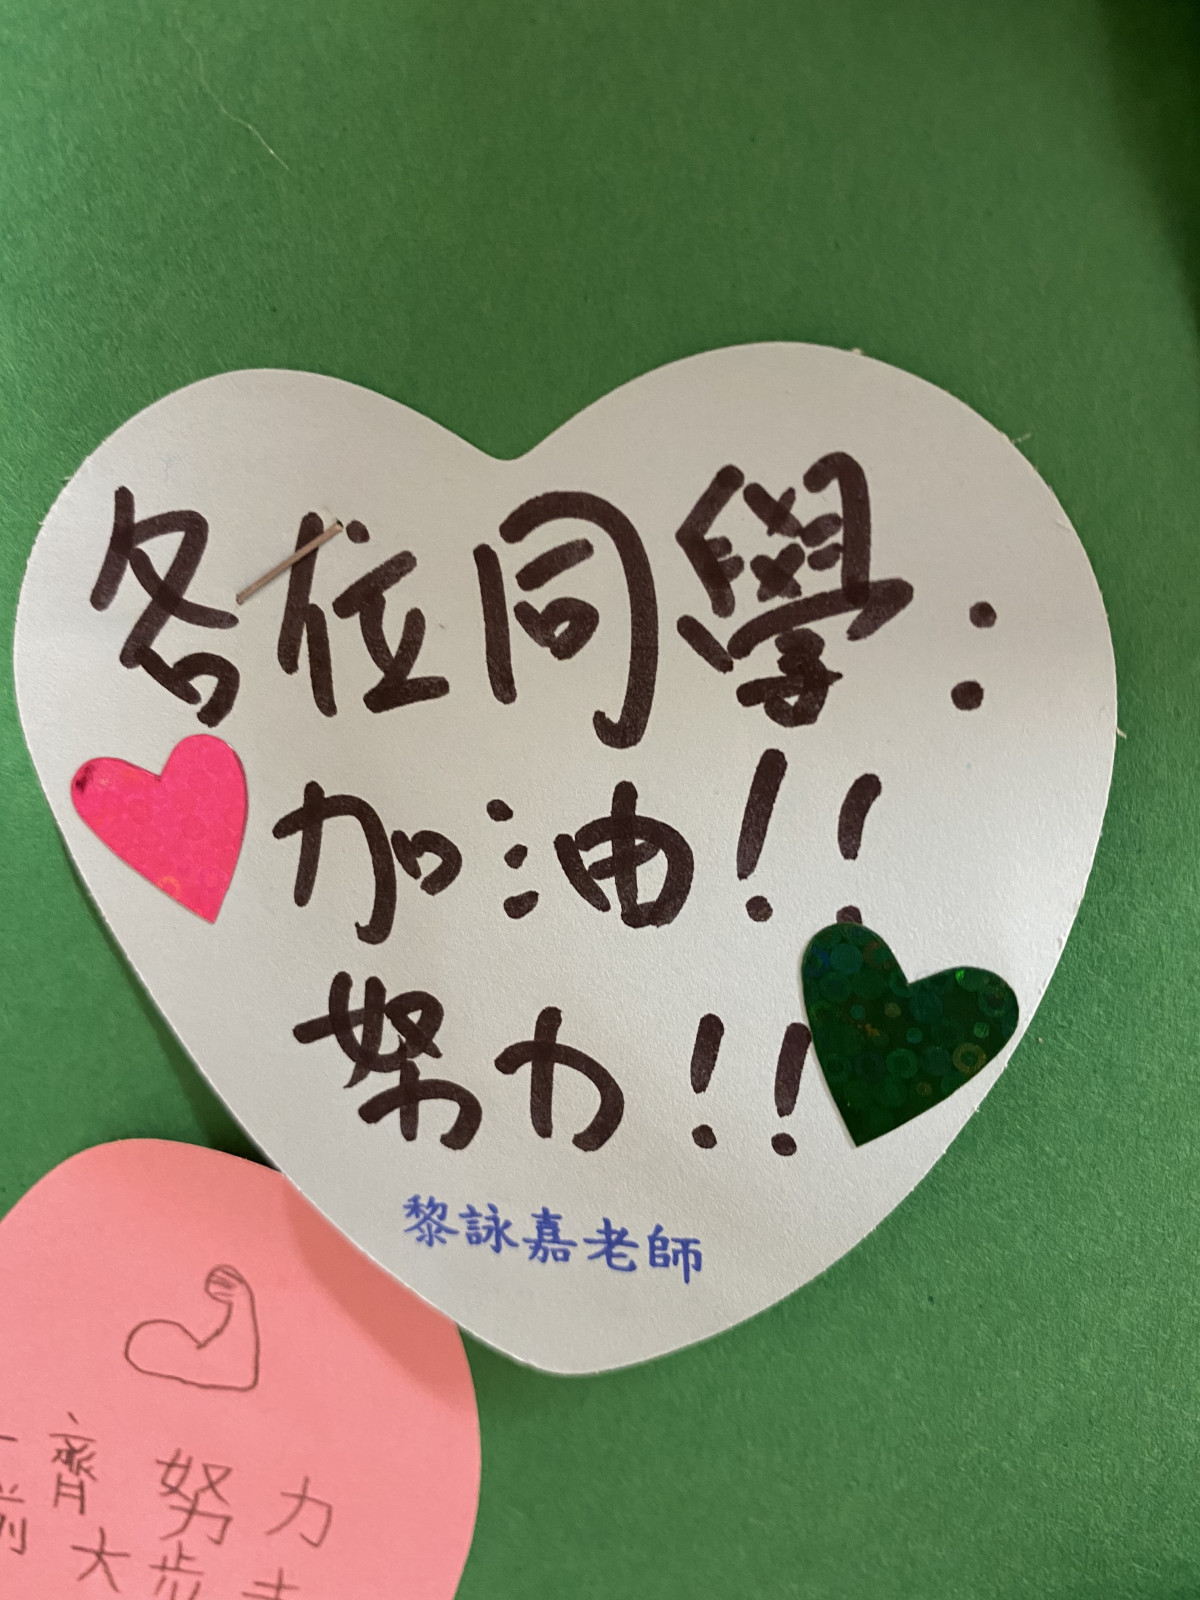 各位同學：
加油！！
努力！！
黎詠嘉老師
一齊努力
前大步走